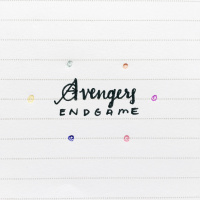 Avengers
ENDGAME